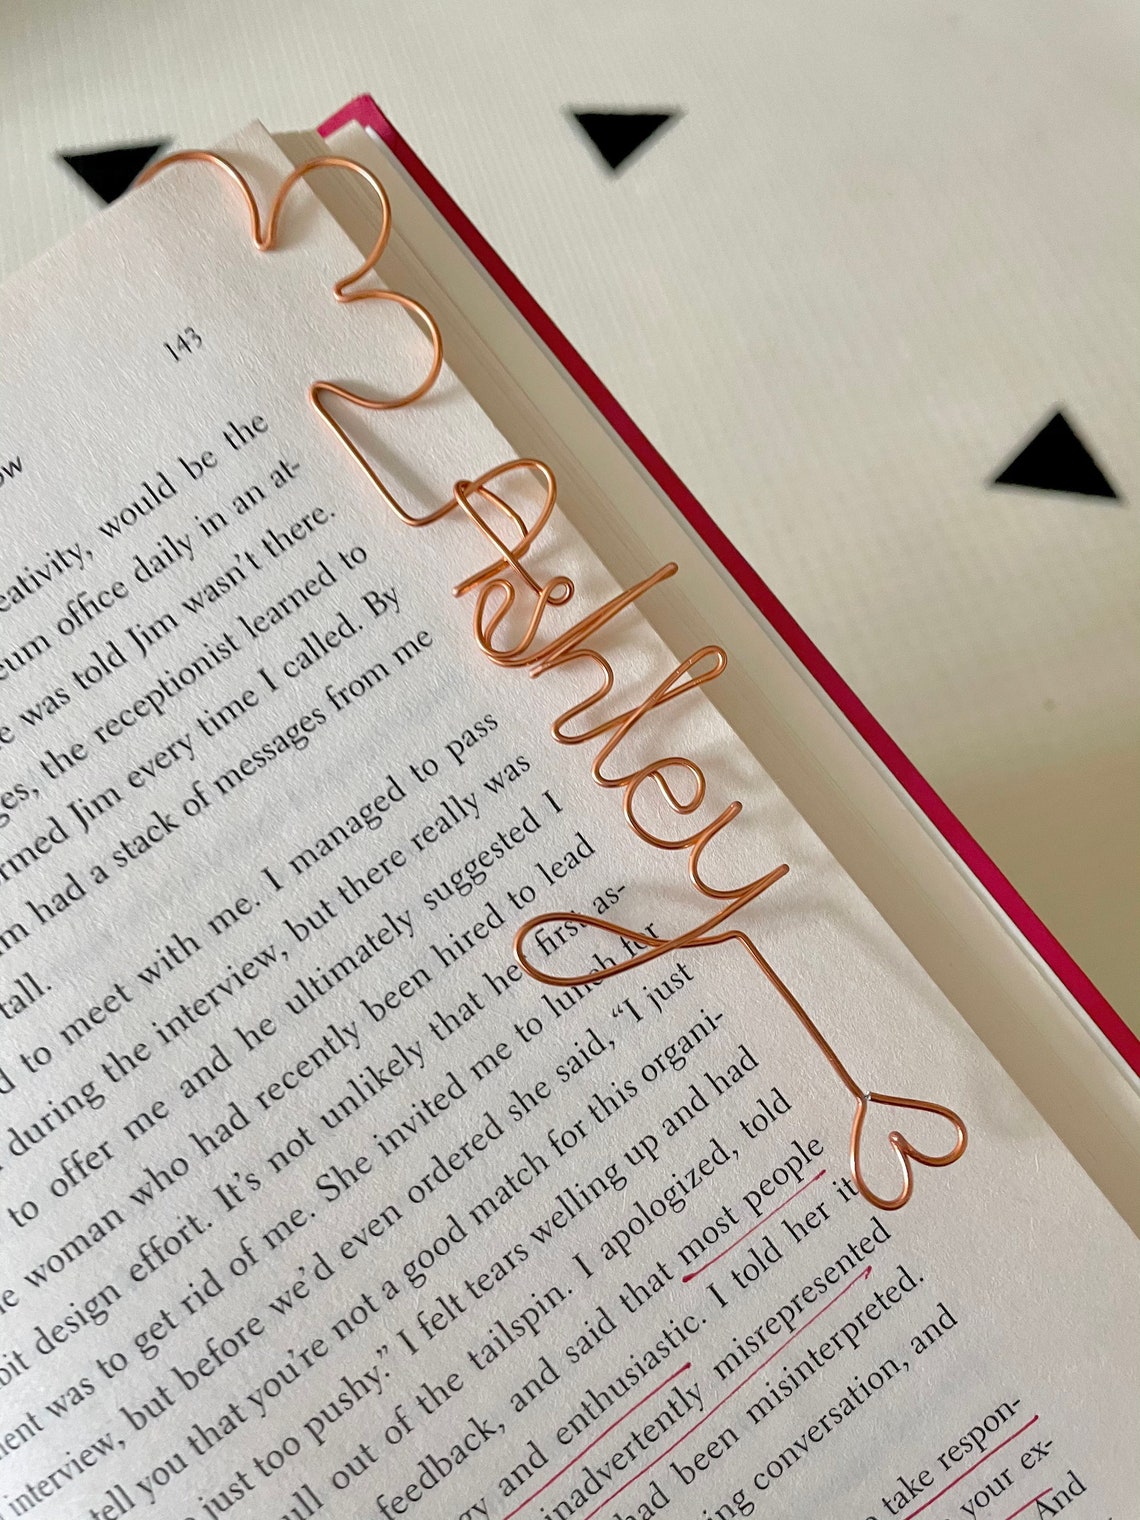 143
ow
eativity, would be the
eum office daily in an at-
e was told Jim wasn't there.
ges, the receptionist learned to
rmed Jim every time I called. By
m had a stack of messages from me
tall.
d to meet with me. I managed to pass
during the interview, but there really was
to offer me and he ultimately suggested I
e woman who had recently been hired to lead
bit design effort. It's not unlikely that he first as-
ent was to get rid of me. She invited me to lunch for
interview, but before we'd even ordered she said, “I just
tell you that you're not a good match for this organi-
just too pushy.” I felt tears welling up and had
ull out of the tailspin. I apologized, told
feedback, and said that most people
gy and enthusiastic. I told her it
inadvertently misrepresented
had been misinterpreted.
ing conversation, and
take respon-
your ex-
And
Ashley